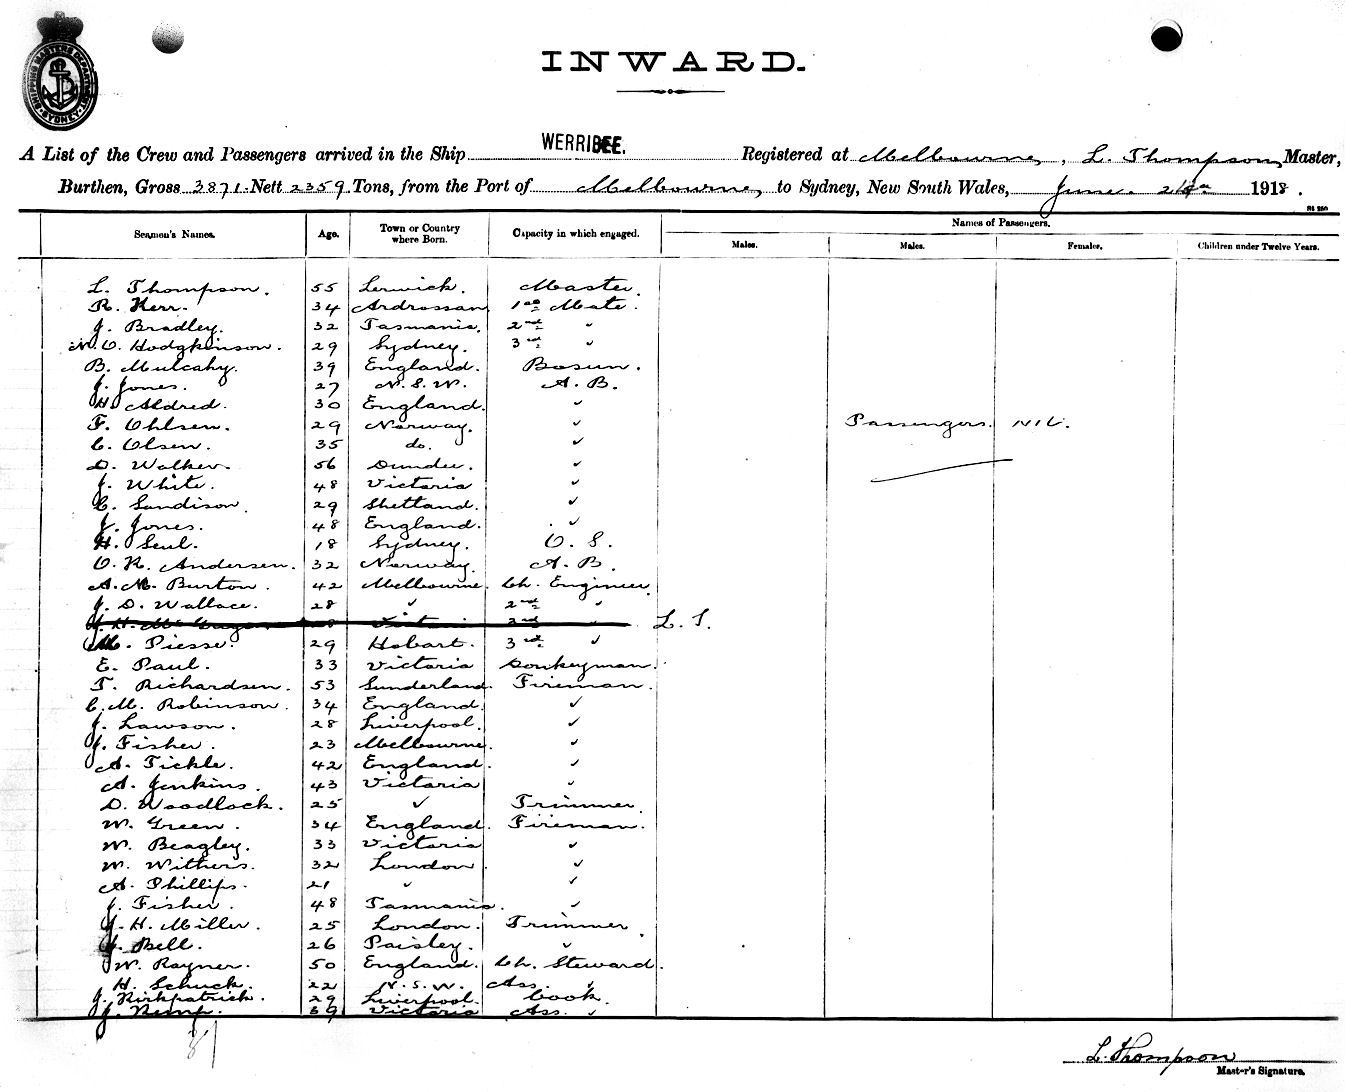 SHIPPING MASTERS DEPARTMENT SYDNEY
INWARD.
A List of the Crew and Passengers arrived in the Ship WERRIBEE. Registered at Melbourne, L. Thompson, Master,
Burthen, Gross 3871 Nett 2359 Tons, from the Port of Melbourne, to Sydney, New South Wales, June 1918.
Names of Passengers.
Seamen's Names. Age. Town or Country where Born. Capacity in which engaged. Males. Males. Females. Children under Twelve Years.
L. Thompson. 55 Lerwick. Master.
R. Kerr. 34 Ardrossan. 1st Mate.
J. Bradley. 32 Tasmania. 2nd "
O. Hodgkinson. 29 Sydney. 3rd "
B. Mulcahy. 39 England. Bosun.
J. Jones. 27 N.S.W. A.B.
H. Aldred. 30 England. "
F. Ohlsen. 29 Norway. " Passengers. NIL.
C. Olsen. 35 do. "
D. Walker. 56 Dundee. "
J. White. 48 Victoria "
C. Sandison. 29 Shetland. "
J. Jones. 48 England. "
H. Seul. 18 Sydney. O.S.
O. K. Andersen. 32 Norway. A.B.
A. M. Burton. 42 Melbourne. Ch. Engineer.
J. D. Wallace. 28 " 2nd "
L.T.
Piesse. 29 Hobart. 3rd "
E. Paul. 33 Victoria Donkeyman.
T. Richardsen. 53 Sunderland. Fireman.
C. M. Robinson. 34 England. "
J. Lawson. 28 Liverpool. "
J. Fisher. 23 Melbourne. "
A. Tickle. 42 England. "
A. Jenkins. 43 Victoria "
D. Woodlock. 25 " Trimmer.
W. Green. 34 England. Fireman.
W. Beagley. 33 Victoria "
W. Withers. 32 London "
A. Phillips. 21 " "
J. Fisher. 48 Tasmania. "
J. H. Miller. 25 London. Trimmer.
J. Bell. 26 Paisley. "
W. Rayner. 50 England. Ch. Steward.
H. Schuck. 22 N.S.W. Ass. "
J. Kirkpatrick. 29 Liverpool. Cook.
J. Kemp. 39 Victoria Ass. "
L. Thompson
Master's Signature.